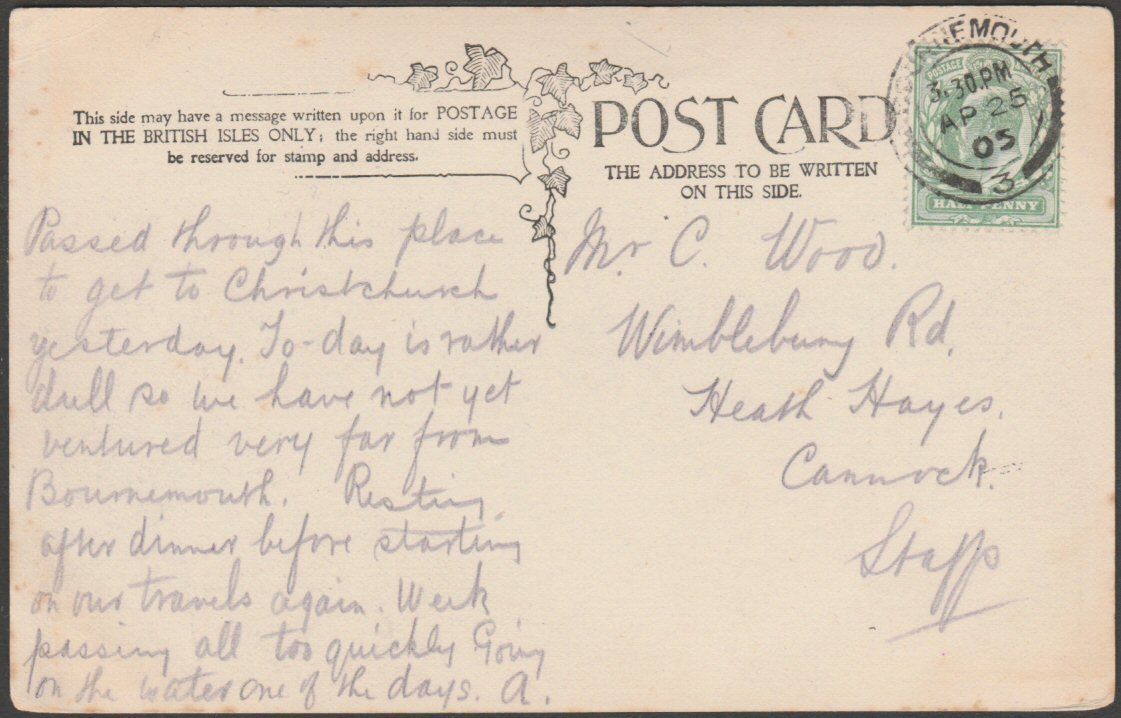 This side may have a message written upon it for POSTAGE
IN THE BRITISH ISLES ONLY; the right hand side must
be reserved for stamp and address.
POST CARD
THE ADDRESS TO BE WRITTEN
ON THIS SIDE.
EMOUTH
3.30 PM
AP 25
05
3
POSTAGE
HALF PENNY
Passed through this place
to get to Christchurch
yesterday. To-day is rather
dull so we have not yet
ventured very far from
Bournemouth. Resting
after dinner before starting
on our travels again. Week
passing all too quickly Going
on the water one of the days. A.
Mr C. Wood.
Wimblebury Rd,
Heath Hayes,
Cannock.
Staffs